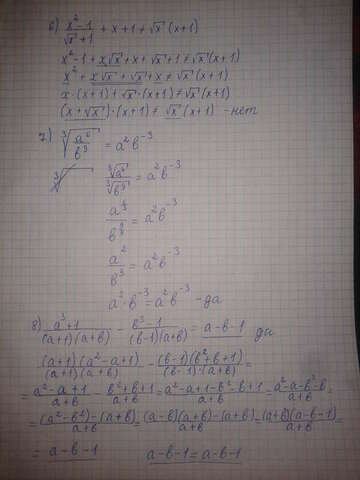 6) (x²-1)/(√x+1) + x + 1 ≠ √x (x+1)
x²-1 + x√x + x + √x + 1 ≠ √x (x+1)
x² + x√x + √x + x ≠ √x (x+1)
x·(x+1) + √x·(x+1) ≠ √x (x+1)
(x+√x)·(x+1) ≠ √x (x+1) - нет
7) ∛(a⁶/b⁹) = a² b⁻³
∛a⁶/∛b⁹ = a² b⁻³
a^(6/3)/b^(9/3) = a² b⁻³
a²/b³ = a² b⁻³
a²·b⁻³ = a² b⁻³ - да
8) (a³+1)/((a+1)(a+b)) - (b³-1)/((b-1)(a+b)) = a-b-1 да
(a+1)(a²-a+1)/((a+1)(a+b)) - (b-1)(b²+b+1)/((b-1)·(a+b)) =
= (a²-a+1)/(a+b) - (b²+b+1)/(a+b) = (a²-a+1-b²-b+1)/(a+b) = (a²-a-b²-b)/(a+b) =
= ((a²-b²)-(a+b))/(a+b) = ((a-b)(a+b)-(a+b))/(a+b) = (a+b)(a-b-1)/(a+b) =
= a-b-1 a-b-1 = a-b-1